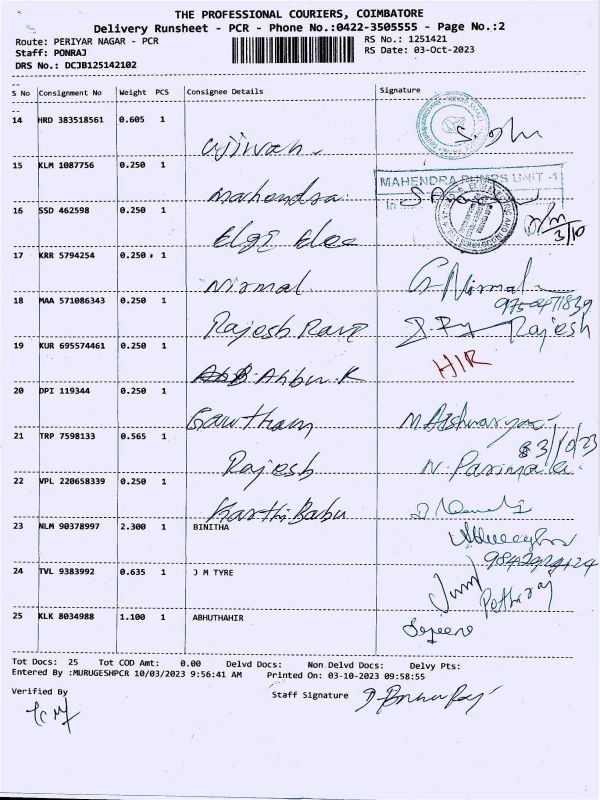 THE PROFESSIONAL COURIERS, COIMBATORE
Delivery Runsheet - PCR - Phone No.:0422-3505555 - Page No.:2
Route: PERIYAR NAGAR - PCR
RS No.: 1251421
Staff: PONRAJ
RS Date: 03-Oct-2023
DRS No.: DCJB125142102
S No Consignment No Weight PCS Consignee Details Signature
14 HRD 383518561 0.605 1 Ujiwan
15 KLM 1087756 0.250 1 Mahendra
MAHENDRA PUMPS UNIT -1
16 SSD 462598 0.250 1 Elgi Elec
3/10
17 KRR 5794254 0.250 1 Nirmal G. Nirmal
18 MAA 571086343 0.250 1 Rajesh Rajesh
19 KUR 695574461 0.250 1 Ahbu K HIR
20 DPI 119344 0.250 1 Gowtham M. Aishwarya
3/10/23
21 TRP 7598133 0.565 1 Rajesh N. Parimala
22 VPL 220658339 0.250 1 Karthi Babu
23 NLM 90378997 2.300 1 BINITHA
24 TVL 9383992 0.635 1 J M TYRE
25 KLK 8034988 1.100 1 ABHUTHAHIR
Tot Docs: 25 Tot COD Amt: 0.00 Delvd Docs: Non Delvd Docs: Delvy Pts:
Entered By :MURUGESHPCR 10/03/2023 9:56:41 AM Printed On: 03-10-2023 09:58:55
Verified By
Staff Signature